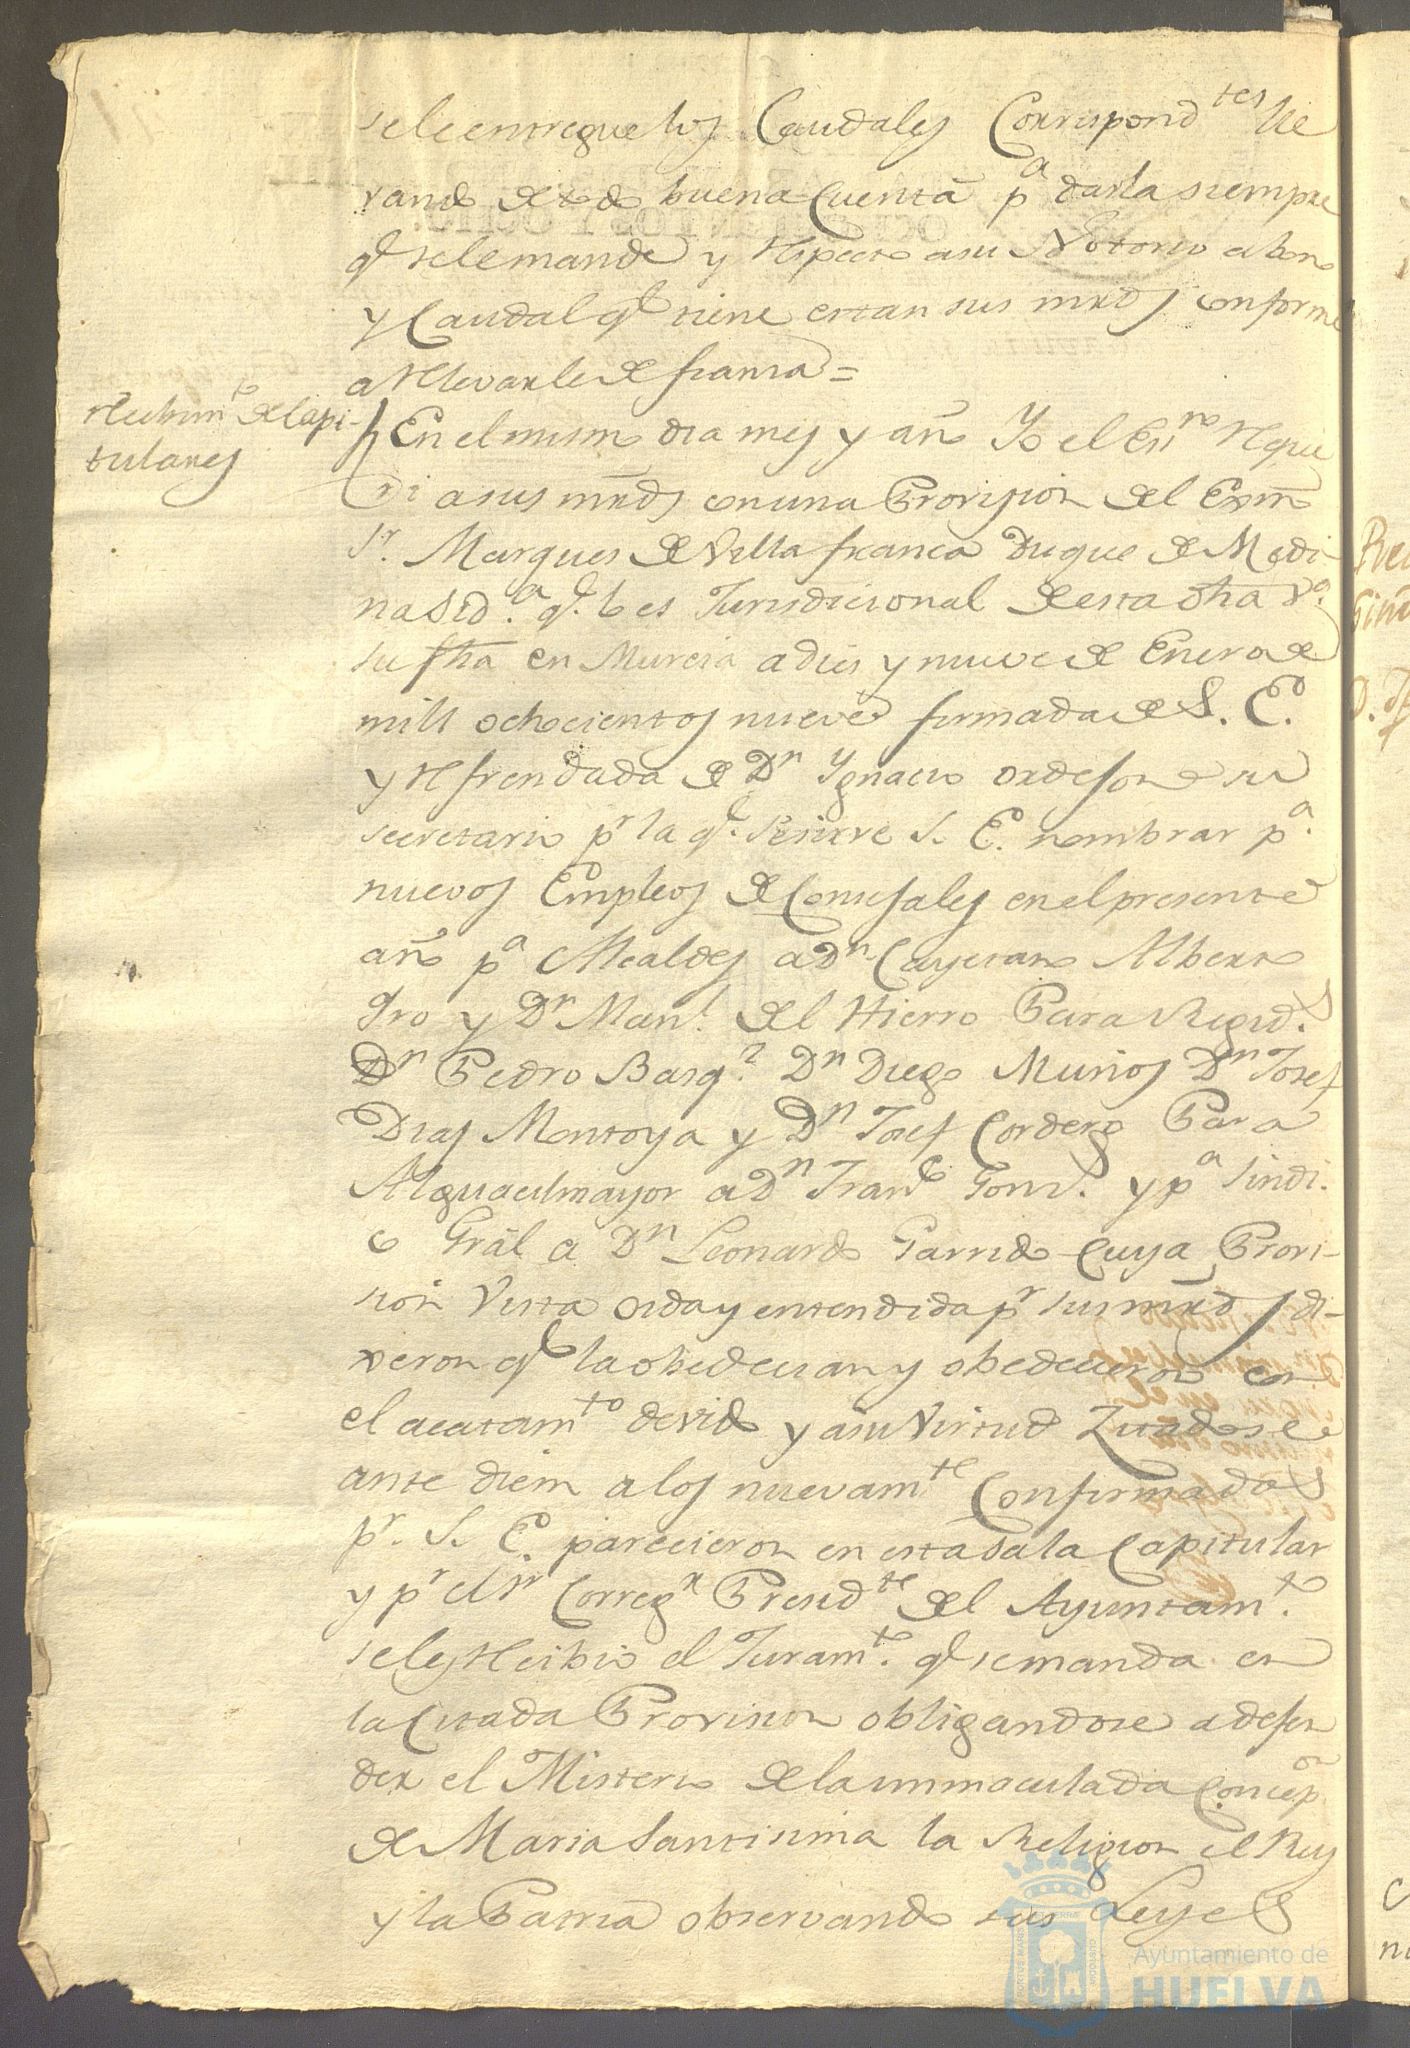 se le entreguen los Caudales Correspond.tes lle
vando de todo buena Cuenta p.a darla siempre
q.e se le mande y respecto a su Notorio abono
y Caudal q.e tiene estan sus mrds conforme
a relevarle de fianza =
Recibim.to de Capi-
tulares
En el mismo dia mes y año Yo el Ess.no reque
ri a sus mrds con una Provision del Exmo
S.r Marques de Villafranca Duque de Medi
na Sid.a q.e lo es Jurisdicional de esta dha V.a
su fha en Murcia a dies y nueve de Enero de
mill ochocientos nueve firmada de S. E.
y refrendada de D.n Ygnacio Ordejon su
secretario p.r la q.e se sirve S. E. nombrar p.a
nuevos Empleos de Consejales en el presente
año p.a Alcaldes a D.n Cayetano Alberto
Dro y D.n Man.l del Hierro Para Regid.s
D.n Pedro Basq.z D.n Diego Muños D.n Josef
Dias Montoya y D.n Josef Cordero Para
Alguacil mayor a D.n Fran.co Gonz. y p.a Sindi.
co Gral a D.n Leonardo Garrido Cuya Provi-
sion Vista oida y entendida p.r sus mrds di-
xeron q.e la obedecian y obedecieron con
el acatam.to devido y a su Virtud Zitandose
ante diem a los nuevam.te Confirmados
p.r S. E. parecieron en esta sala Capitular
y p.r el S.r Correg.r Presid.te del Ayuntam.to
se les recibio el Juram.to q.e se manda en
la Citada Provision obligandose a defen
der el Misterio de la inmaculada Concep.on
de Maria Santisima la Religion el Rey
y la Patria observando sus Leyes
Ayuntamiento de
HUELVA